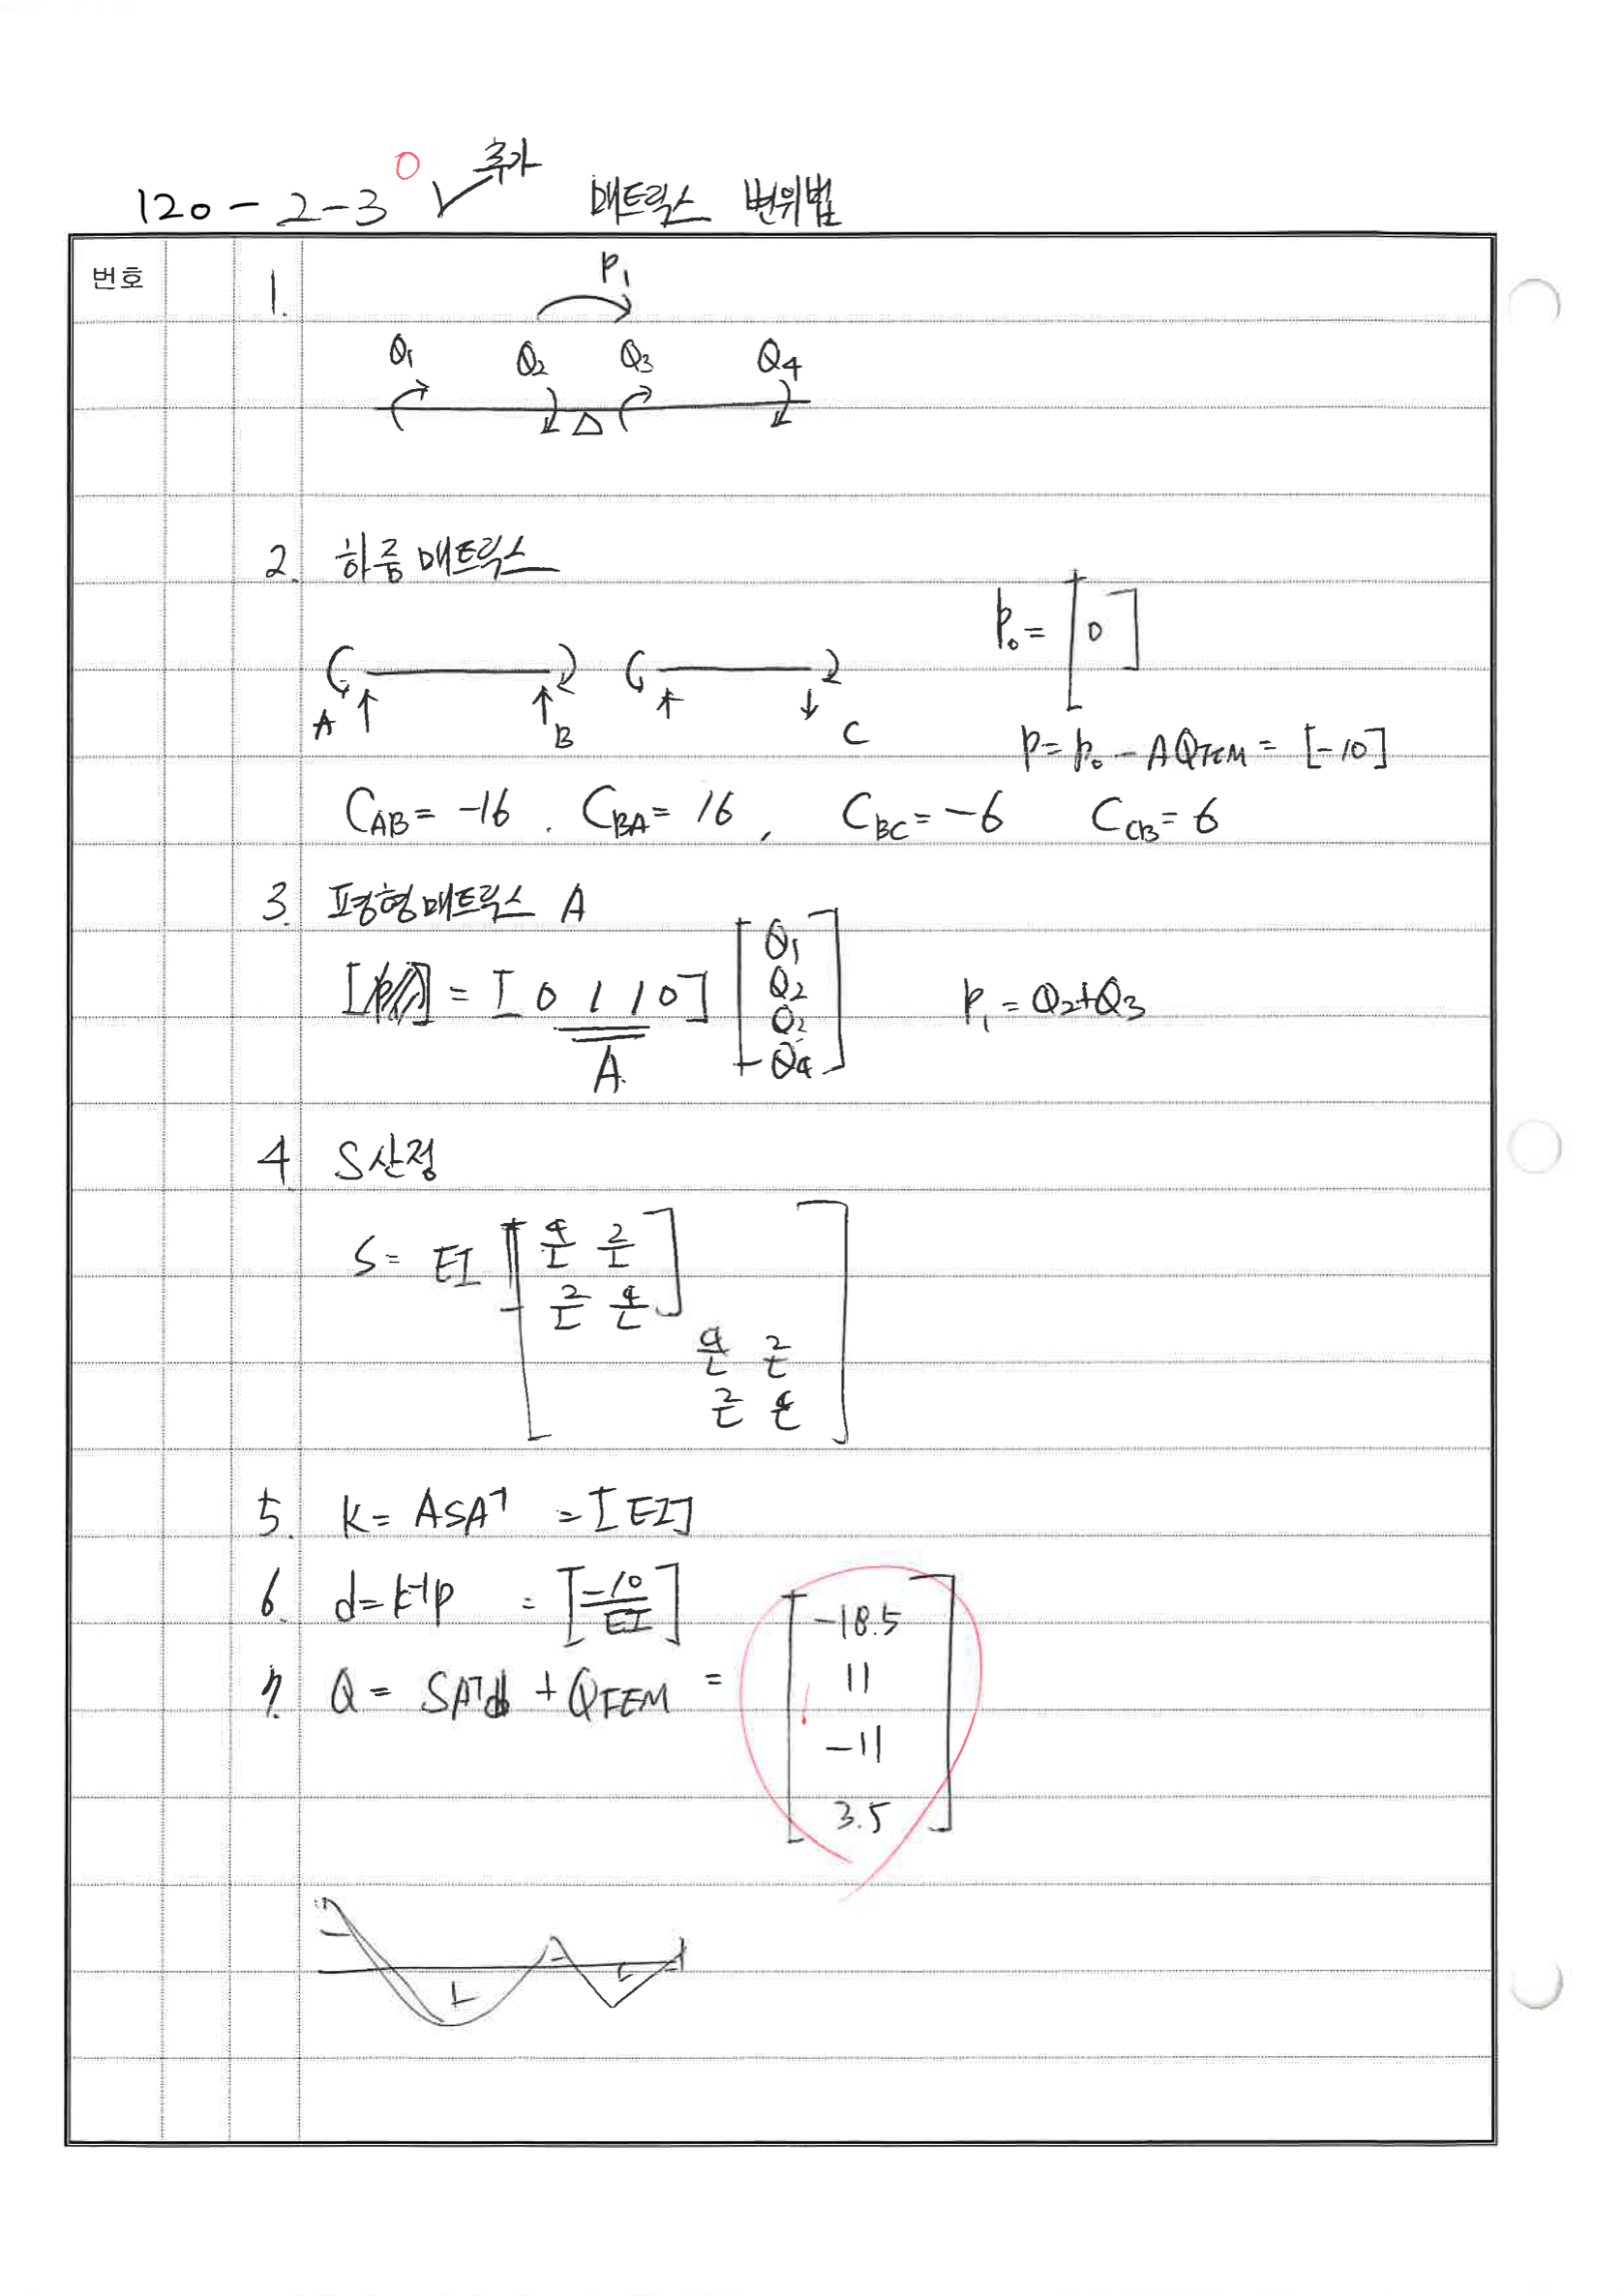 120-2-3 0 ✓ 추가 매트릭스 변위법
번호
1.
P₁
Q₁ Q₂ Q₃ Q₄
2. 하중매트릭스
P₀ = [0]
A B C
P = P₀ - AQFEM = [-10]
C_AB = -16 . C_BA = 16 , C_BC = -6 C_CB = 6
3. 평형매트릭스 A
= [0 1 1 0] [Q₁ Q₂ Q₂ Q₄] P₁ = Q₂+Q₃
A
4. S산정
S = EI [4/L 2/L
2/L 4/L]
4/L 2/L
2/L 4/L
5. K = ASAᵀ = [EI]
6. d = K⁻¹P = [-10/EI]
7. Q = SAᵀd + QFEM = [-18.5
11
-11
3.5]